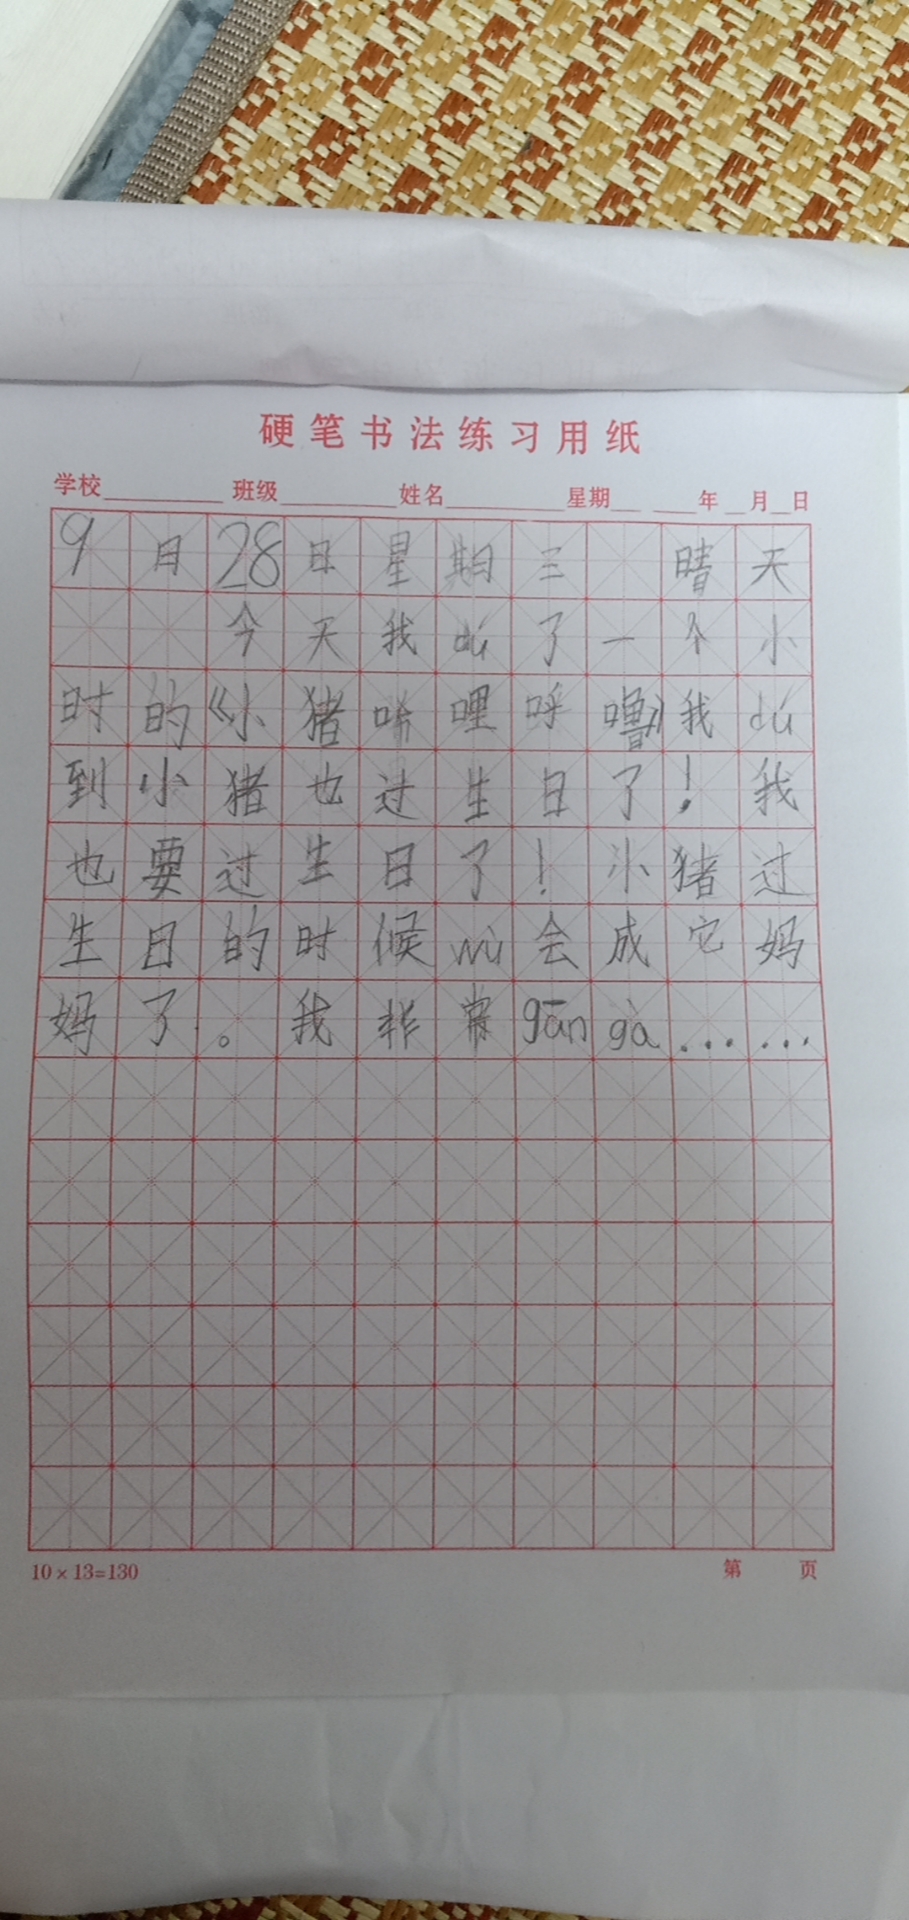 硬笔书法练习用纸
学校 班级 姓名 星期 年 月 日
9月28日星期三 晴天
今天我dú了一个小
时的《小猪唏哩呼噜》我dú
到小猪也过生日了！我
也要过生日了！小猪过
生日的时候wù会成它妈
妈了。我非常gān gà……
10×13=130 第 页